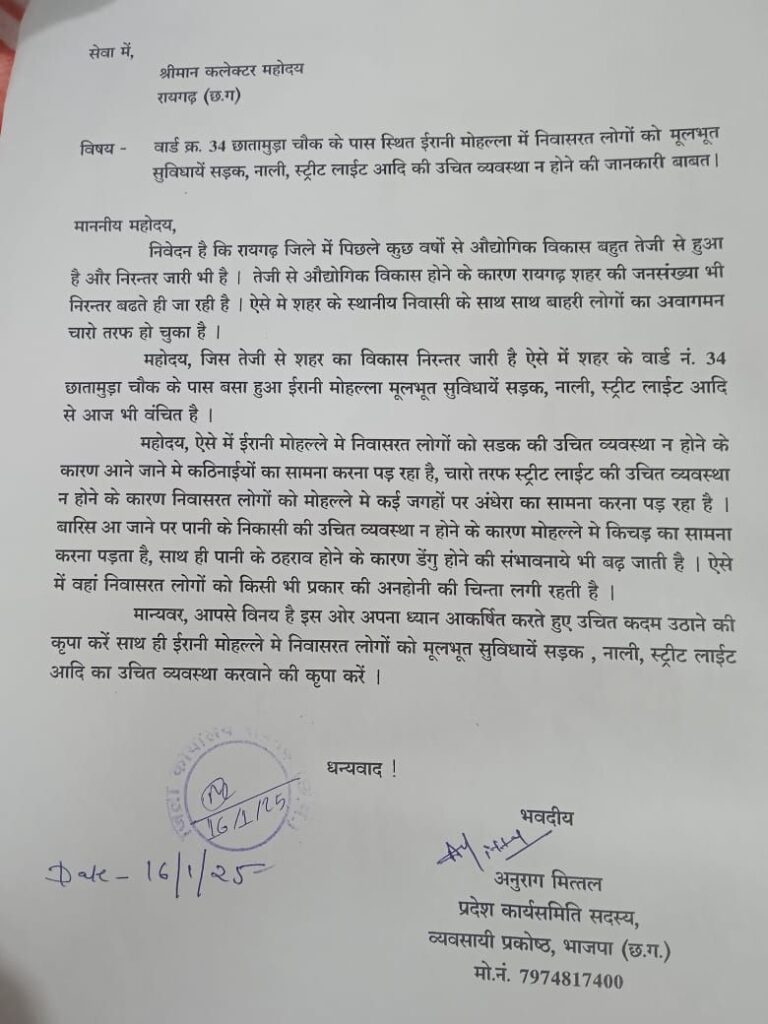 सेवा में,
श्रीमान कलेक्टर महोदय
रायगढ़ (छ.ग)
विषय - वार्ड क्र. 34 छातामुड़ा चौक के पास स्थित ईरानी मोहल्ला में निवासरत लोगों को मूलभूत
सुविधायें सड़क, नाली, स्ट्रीट लाईट आदि की उचित व्यवस्था न होने की जानकारी बाबत।
माननीय महोदय,
निवेदन है कि रायगढ़ जिले में पिछले कुछ वर्षो से औद्योगिक विकास बहुत तेजी से हुआ
है और निरन्तर जारी भी है । तेजी से औद्योगिक विकास होने के कारण रायगढ़ शहर की जनसंख्या भी
निरन्तर बढते ही जा रही है । ऐसे मे शहर के स्थानीय निवासी के साथ साथ बाहरी लोगों का अवागमन
चारो तरफ हो चुका है ।
महोदय, जिस तेजी से शहर का विकास निरन्तर जारी है ऐसे में शहर के वार्ड नं. 34
छातामुड़ा चौक के पास बसा हुआ ईरानी मोहल्ला मूलभूत सुविधायें सड़क, नाली, स्ट्रीट लाईट आदि
से आज भी वंचित है ।
महोदय, ऐसे में ईरानी मोहल्ले मे निवासरत लोगों को सडक की उचित व्यवस्था न होने के
कारण आने जाने मे कठिनाईयों का सामना करना पड़ रहा है, चारो तरफ स्ट्रीट लाईट की उचित व्यवस्था
न होने के कारण निवासरत लोगों को मोहल्ले मे कई जगहों पर अंधेरा का सामना करना पड़ रहा है ।
बारिस आ जाने पर पानी के निकासी की उचित व्यवस्था न होने के कारण मोहल्ले मे किचड़ का सामना
करना पड़ता है, साथ ही पानी के ठहराव होने के कारण डेंगु होने की संभावनाये भी बढ़ जाती है । ऐसे
में वहां निवासरत लोगों को किसी भी प्रकार की अनहोनी की चिन्ता लगी रहती है ।
मान्यवर, आपसे विनय है इस ओर अपना ध्यान आकर्षित करते हुए उचित कदम उठाने की
कृपा करें साथ ही ईरानी मोहल्ले मे निवासरत लोगों को मूलभूत सुविधायें सड़क , नाली, स्ट्रीट लाईट
आदि का उचित व्यवस्था करवाने की कृपा करें ।
धन्यवाद !
16/1/25
Date - 16/1/25
भवदीय
अनुराग मित्तल
प्रदेश कार्यसमिति सदस्य,
व्यवसायी प्रकोष्ठ, भाजपा (छ.ग.)
मो.नं. 7974817400